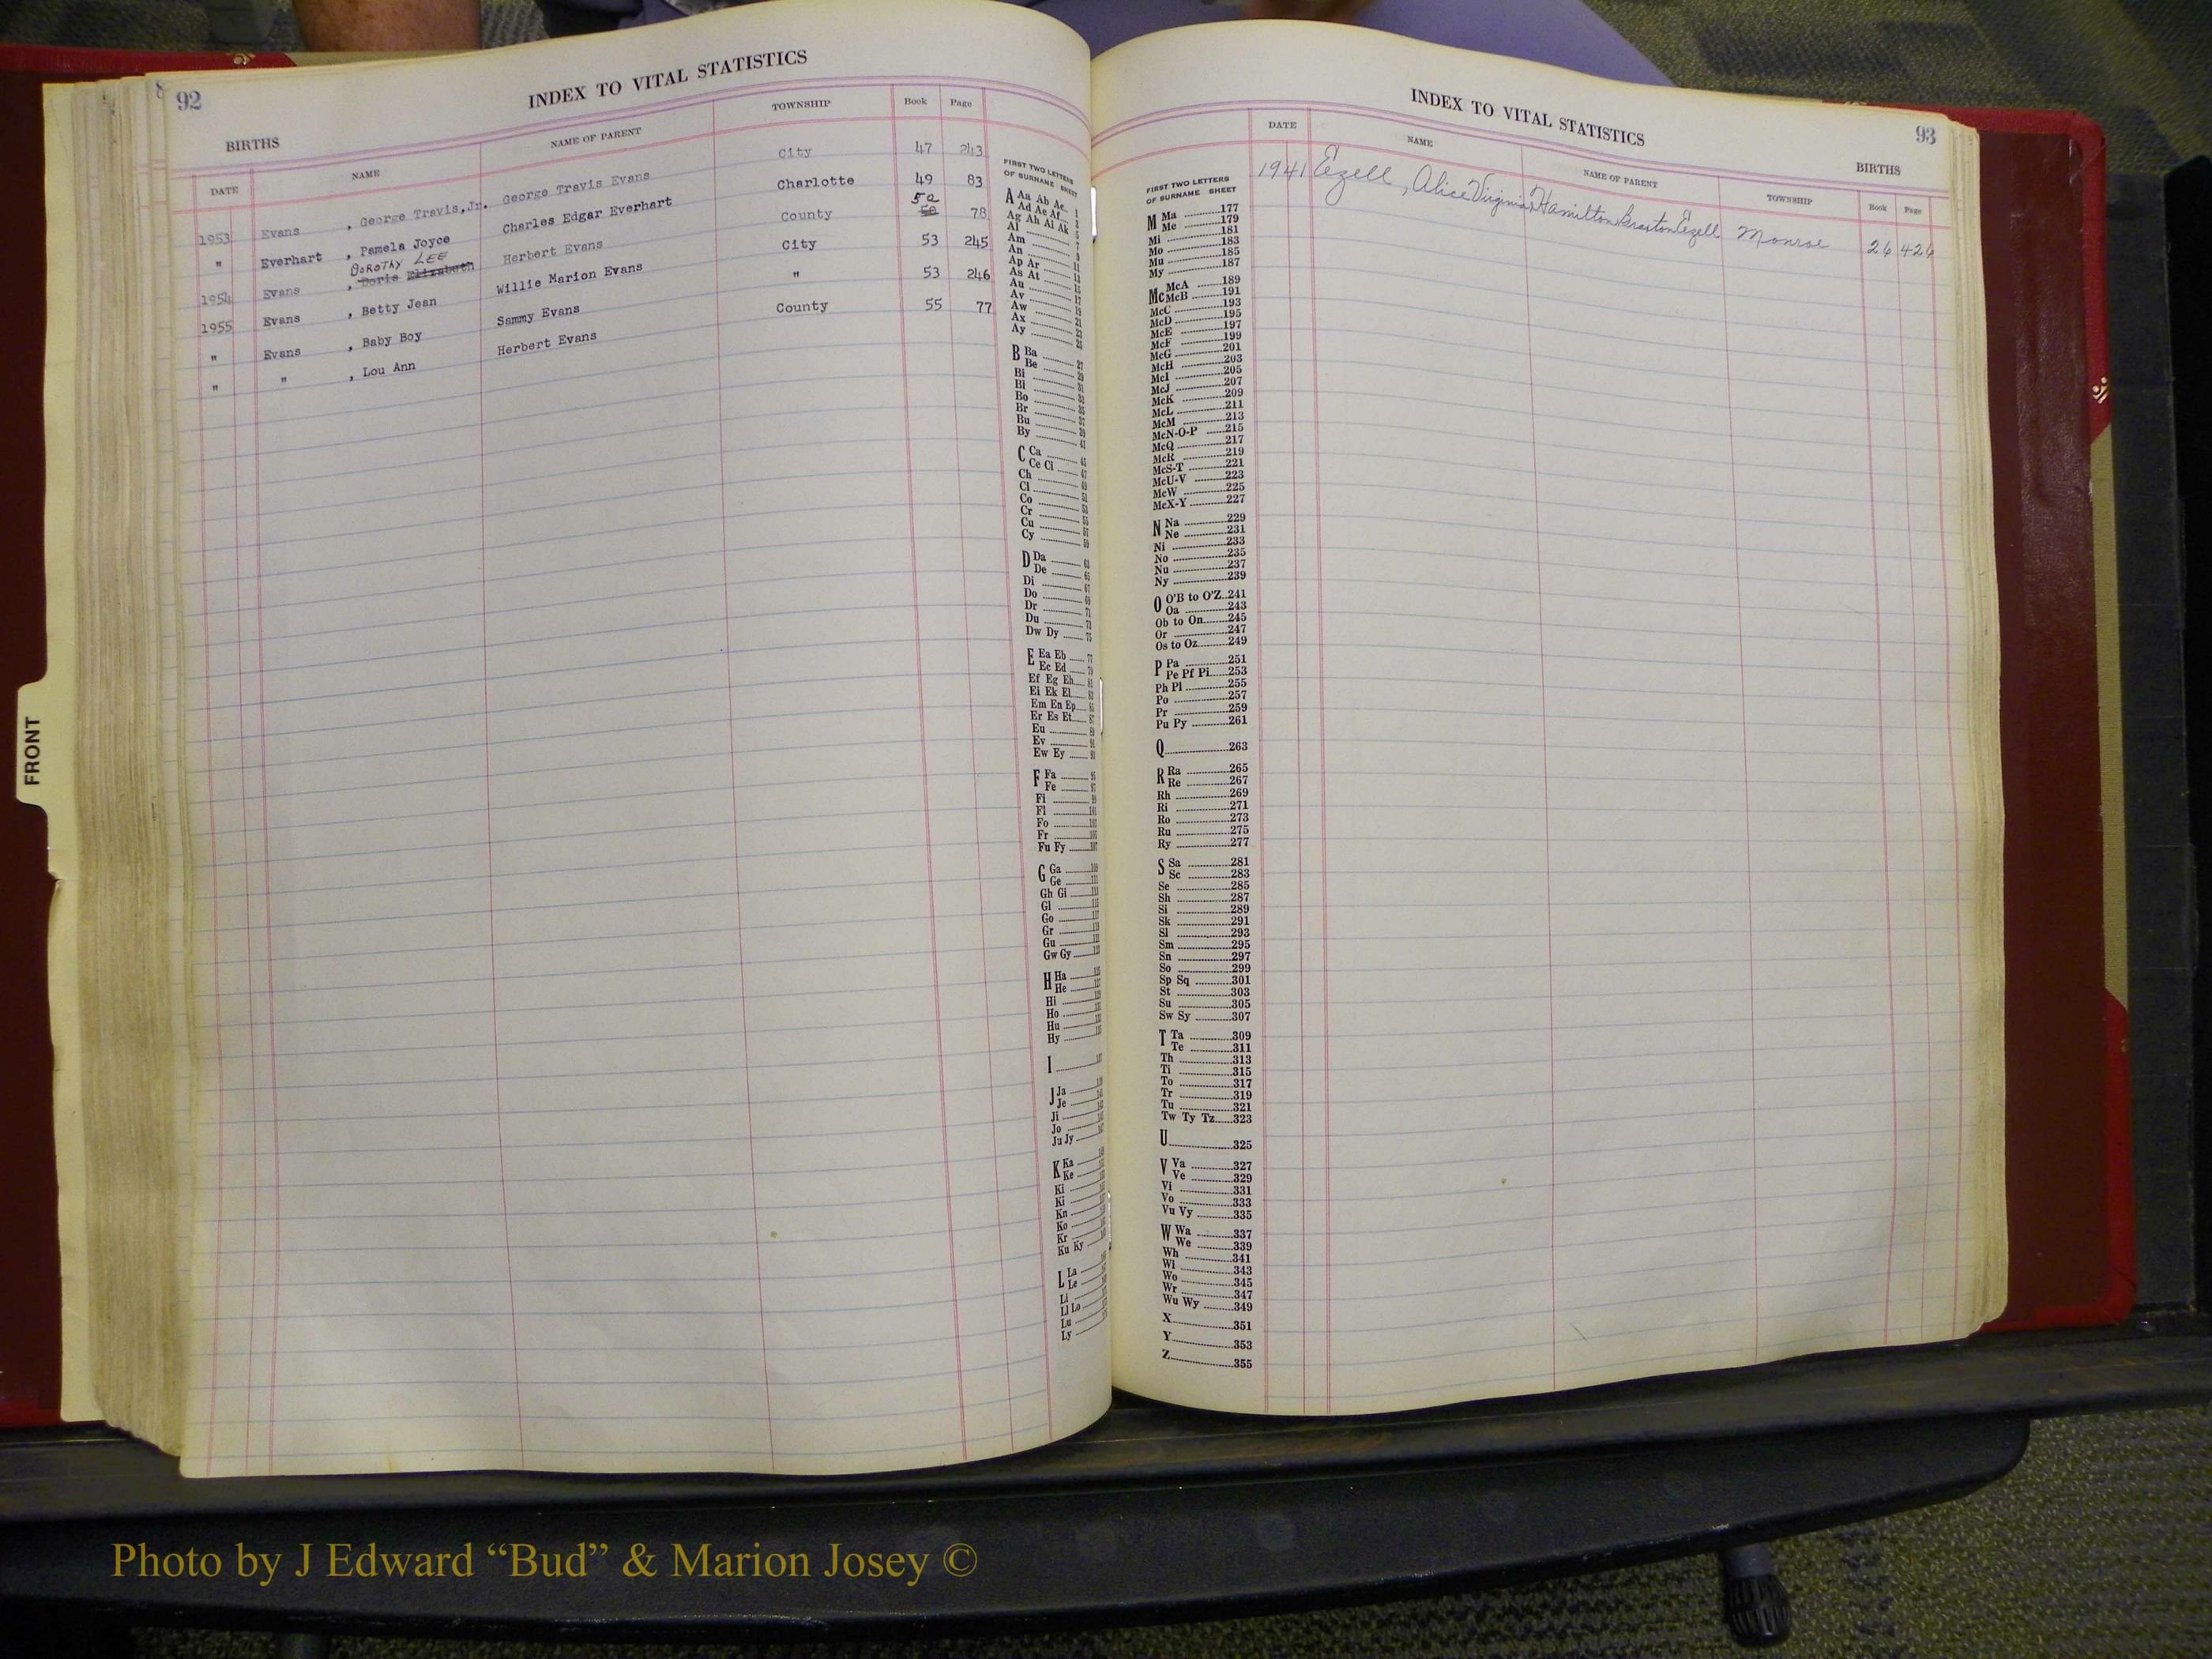 92
INDEX TO VITAL STATISTICS
BIRTHS
DATE NAME NAME OF PARENT TOWNSHIP Book Page
1953 Evans , George Travis,Jr. George Travis Evans City 47 243
" Everhart , Pamela Joyce Charles Edgar Everhart Charlotte 49 83
DOROTHY LEE 50
1954 Evans , Doris Elizabeth Herbert Evans County 50 78
1955 Evans , Betty Jean Willie Marion Evans City 53 245
" Evans , Baby Boy Sammy Evans " 53 246
" " , Lou Ann Herbert Evans County 55 77
FIRST TWO LETTERS
OF SURNAME SHEET
A Aa Ab Ac
Ad Ae Af
Ag Ah Ai Ak
Al
Am
An
Ap Ar
As At
Au
Av
Aw
Ax
Ay
B Ba
Be
Bi
Bl
Bo
Br
Bu
By
C Ca
Ce Ci
Ch
Cl
Co
Cr
Cu
Cy
D Da
De
Di
Do
Dr
Du
Dw Dy
E Ea Eb
Ec Ed
Ef Eg Eh
Ei Ek El
Em En Ep
Er Es Et
Eu
Ev
Ew Ey
F Fa
Fe
Fi
Fl
Fo
Fr
Fu Fy
G Ga
Ge
Gh Gi
Gl
Go
Gr
Gu
Gw Gy
H Ha
He
Hi
Ho
Hu
Hy
I
J Ja
Je
Ji
Jo
Ju Jy
K Ka
Ke
Ki
Kl
Kn
Ko
Kr
Ku Ky
L La
Le
Li
Ll Lo
Lu
Ly
INDEX TO VITAL STATISTICS
93
BIRTHS
DATE NAME NAME OF PARENT TOWNSHIP Book Page
1941 Ezell , Alice Virginia Hamilton Braxton Ezell Monroe 26 426
FIRST TWO LETTERS
OF SURNAME SHEET
M Ma 177
Me 179
Mi 181
Mo 183
Mu 185
My 187
Mc McA 189
McB 191
McC 193
McD 195
McE 197
McF 199
McG 201
McH 203
McI 205
McJ 207
McK 209
McL 211
McM 213
McN-O-P 215
McQ 217
McR 219
McS-T 221
McU-V 223
McW 225
McX-Y 227
N Na 229
Ne 231
Ni 233
No 235
Nu 237
Ny 239
O O'B to O'Z 241
Oa 243
Ob to On 245
Or 247
Os to Oz 249
P Pa 251
Pe Pf Pi 253
Ph Pl 255
Po 257
Pr 259
Pu Py 261
Q 263
R Ra 265
Re 267
Rh 269
Ri 271
Ro 273
Ru 275
Ry 277
S Sa 281
Sc 283
Se 285
Sh 287
Si 289
Sk 291
Sl 293
Sm 295
Sn 297
So 299
Sp Sq 301
St 303
Su 305
Sw Sy 307
T Ta 309
Te 311
Th 313
Ti 315
To 317
Tr 319
Tu 321
Tw Ty Tz 323
U 325
V Va 327
Ve 329
Vi 331
Vo 333
Vu Vy 335
W Wa 337
We 339
Wh 341
Wi 343
Wo 345
Wr 347
Wu Wy 349
X 351
Y 353
Z 355
FRONT
Photo by J Edward “Bud” & Marion Josey ©